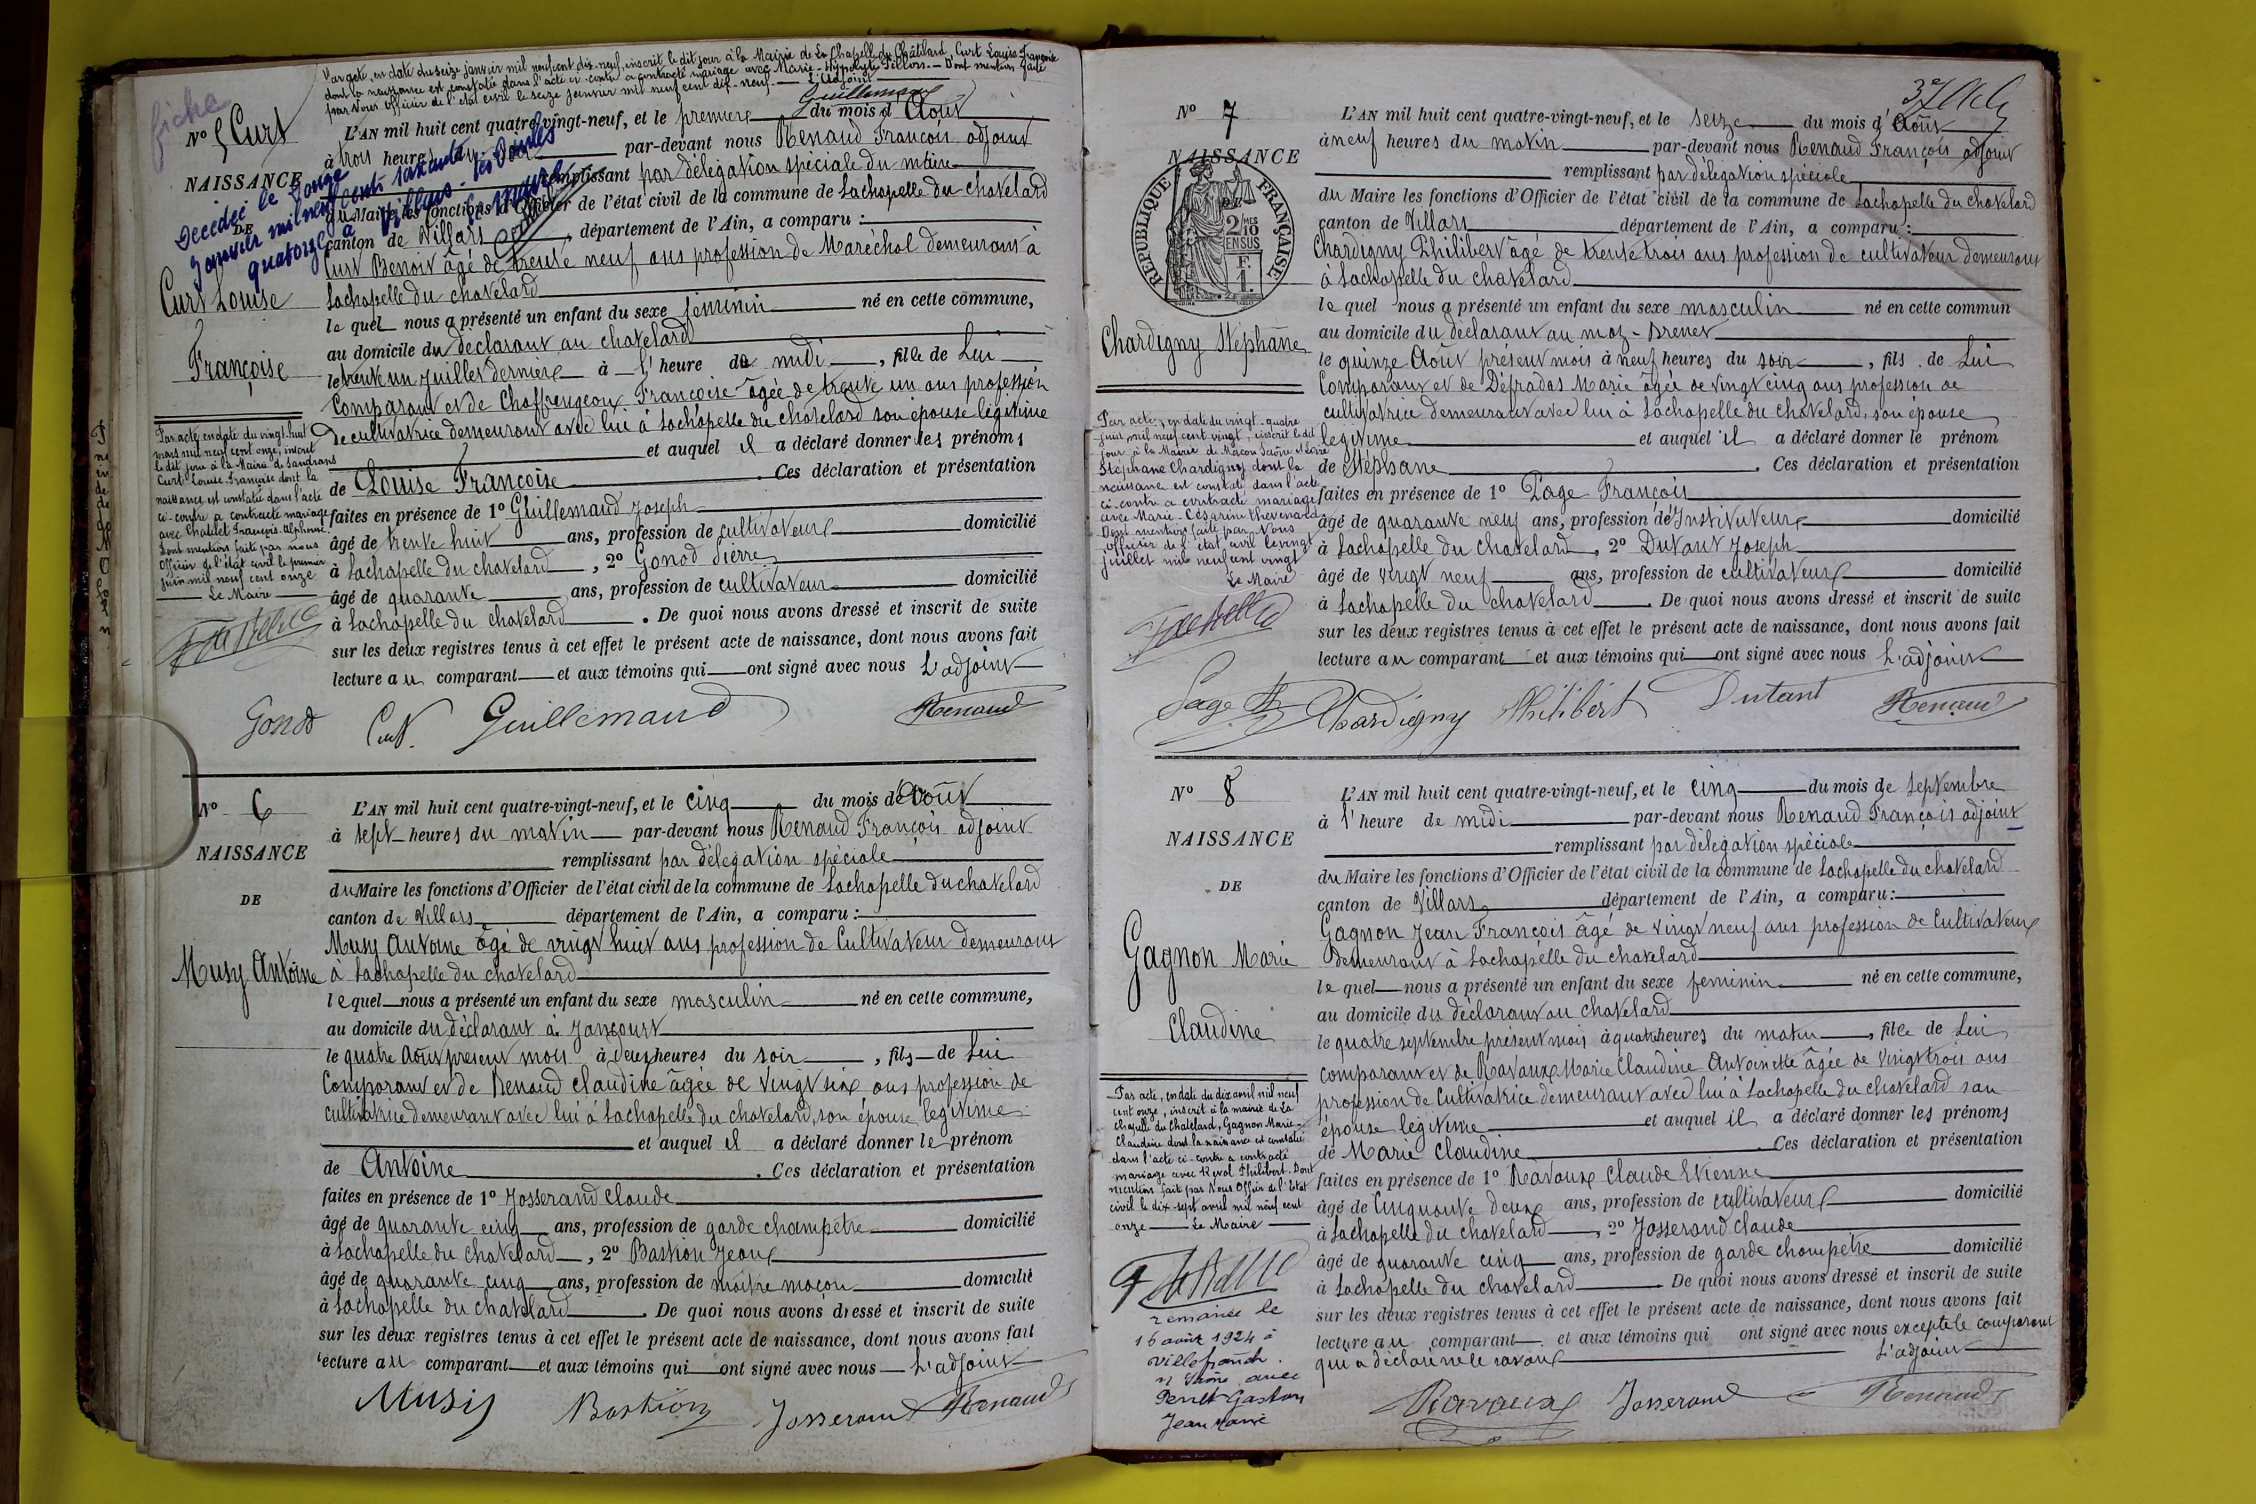 Par acte, en date du seize janvier mil neuf cent dix-neuf, inscrit le dit jour à la Mairie de La Chapelle du Châtelard, Curt Louise Françoise
dont la naissance est constatée dans l'acte ci-contre a contracté mariage avec Marie-Hippolyte Pillon. Dont mention faite
par Nous Officier de l'état civil le seize janvier mil neuf cent dix-neuf. L'adjoint
Guillemaud
fiche
No 5 Curt
NAISSANCE
DE
Curt Louise
Françoise
Décédée le onze
Janvier mil neuf cent soixante
quatorze à Villars-les-Dombes
L'AN mil huit cent quatre-vingt-neuf, et le premier du mois d'Août
à trois heures du soir par-devant nous Renaud François adjoint
remplissant par délégation spéciale du maire
du Maire les fonctions d'Officier de l'état civil de la commune de Lachapelle du chatelard
canton de Villars, département de l'Ain, a comparu :
Curt Benoit âgé de trente neuf ans profession de Maréchal demeurant à
Lachapelle du chatelard
le quel nous a présenté un enfant du sexe féminin né en cette commune,
au domicile du déclarant au chatelard
le trente un Juillet dernier à l'heure de midi, fille de Lui
Comparant et de Choffengeou Françoise âgée de trente un ans profession
de cultivatrice demeurant avec lui à Lachapelle du chatelard son épouse légitime
et auquel il a déclaré donner les prénoms
de Louise Françoise. Ces déclaration et présentation
faites en présence de 1o Guillemaud Joseph
âgé de trente huit ans, profession de cultivateur domicilié
à Lachapelle du chatelard, 2o Gonod Pierre
âgé de quarante ans, profession de cultivateur domicilié
à Lachapelle du chatelard. De quoi nous avons dressé et inscrit de suite
sur les deux registres tenus à cet effet le présent acte de naissance, dont nous avons fait
lecture au comparant et aux témoins qui ont signé avec nous L'adjoint
Par acte en date du vingt-huit
mars mil neuf cent onze, inscrit
le dit jour à la Mairie de Sandrans
Curt Louise-Françoise dont la
naissance est constatée dans l'acte
ci-contre a contracté mariage
avec Chatelet François-Alphonse.
Dont mention faite par nous
Officier de l'état civil le premier
juin mil neuf cent onze
Le Maire
Gonod Curt Guillemaud Renaud
No 6
NAISSANCE
DE
Musy Antoine
L'AN mil huit cent quatre-vingt-neuf, et le cinq du mois d'Août
à sept heures du matin par-devant nous Renaud François adjoint
remplissant par délégation spéciale
du Maire les fonctions d'Officier de l'état civil de la commune de Lachapelle du chatelard
canton de Villars département de l'Ain, a comparu :
Musy Antoine âgé de vingt huit ans profession de Cultivateur demeurant
à Lachapelle du chatelard
le quel nous a présenté un enfant du sexe masculin né en cette commune,
au domicile du déclarant à Jancourt
le quatre Août présent mois à deux heures du soir, fils de Lui
Comparant et de Renaud Claudine âgée de vingt six ans profession de
cultivatrice demeurant avec lui à Lachapelle du chatelard, son épouse légitime
et auquel il a déclaré donner le prénom
de Antoine. Ces déclaration et présentation
faites en présence de 1o Josserand Claude
âgé de quarante cinq ans, profession de garde champêtre domicilié
à Lachapelle du chatelard, 2o Bastion Jean
âgé de quarante cinq ans, profession de maître maçon domicilié
à Lachapelle du chatelard. De quoi nous avons dressé et inscrit de suite
sur les deux registres tenus à cet effet le présent acte de naissance, dont nous avons fait
lecture au comparant et aux témoins qui ont signé avec nous L'adjoint
Musy Bastion Josserand Renaud
37
No 7
NAISSANCE
RÉPUBLIQUE FRANÇAISE
2/10 MES
EN SUS
1 F.
Chardigny Stéphane
L'AN mil huit cent quatre-vingt-neuf, et le seize du mois d'Août
à neuf heures du matin par-devant nous Renaud François adjoint
remplissant par délégation spéciale
du Maire les fonctions d'Officier de l'état civil de la commune de Lachapelle du chatelard
canton de Villars département de l'Ain, a comparu :
Chardigny Philibert âgé de trente trois ans profession de cultivateur demeurant
à Lachapelle du chatelard
le quel nous a présenté un enfant du sexe masculin né en cette commun
au domicile du déclarant au maz-Brenet
le quinze Août présent mois à neuf heures du soir, fils de Lui
Comparant et de Défradas Marie âgée de vingt cinq ans profession de
cultivatrice demeurant avec lui à Lachapelle du chatelard, son épouse
légitime et auquel il a déclaré donner le prénom
de Stéphane. Ces déclaration et présentation
faites en présence de 1o Page François
âgé de quarante neuf ans, profession d'Instituteur domicilié
à Lachapelle du chatelard, 2o Dutant Joseph
âgé de vingt neuf ans, profession de cultivateur domicilié
à Lachapelle du chatelard. De quoi nous avons dressé et inscrit de suite
sur les deux registres tenus à cet effet le présent acte de naissance, dont nous avons fait
lecture au comparant et aux témoins qui ont signé avec nous L'adjoint
Par acte, en date du vingt-quatre
juin mil neuf cent vingt, inscrit le dit
jour à la Mairie de Macon Saône et Loire
Stéphane Chardigny dont la
naissance est constatée dans l'acte
ci-contre a contracté mariage
avec Marie-Césarine Thevenard.
Dont mention faite par Nous
Officier de l'état civil le vingt
juillet mil neuf cent vingt
Le Maire
Page Chardigny Philibert Dutant Renaud
No 8
NAISSANCE
DE
Gagnon Marie
Claudine
L'AN mil huit cent quatre-vingt-neuf, et le cinq du mois de Septembre
à l'heure de midi par-devant nous Renaud François adjoint
remplissant par délégation spéciale
du Maire les fonctions d'Officier de l'état civil de la commune de Lachapelle du chatelard
canton de Villars département de l'Ain, a comparu :
Gagnon Jean François âgé de vingt neuf ans profession de Cultivateur
demeurant à Lachapelle du chatelard
le quel nous a présenté un enfant du sexe feminin né en cette commune,
au domicile du déclarant au chatelard
le quatre septembre présent mois à quatre heures du matin, fille de Lui
comparant et de Ravaux Marie Claudine Antoinette âgée de vingt trois ans
profession de Cultivatrice demeurant avec lui à Lachapelle du chatelard san
épouse légitime et auquel il a déclaré donner les prénoms
de Marie Claudine. Ces déclaration et présentation
faites en présence de 1o Ravaux Claude Etienne
âgé de Cinquante deux ans, profession de cultivateur domicilié
à Lachapelle du chatelard, 2o Josserand Claude
âgé de quarante cinq ans, profession de garde champêtre domicilié
à Lachapelle du chatelard. De quoi nous avons dressé et inscrit de suite
sur les deux registres tenus à cet effet le présent acte de naissance, dont nous avons fait
lecture au comparant et aux témoins qui ont signé avec nous excepté le comparant
qui a déclaré ne le savoir L'adjoint
Par acte, en date du dix avril mil neuf
cent onze, inscrit à la mairie de La
Chapelle du Châtelard, Gagnon Marie-
Claudine dont la naissance est constatée
dans l'acte ci-contre a contracté
mariage avec Reval Philibert. Dont
mention fait par Nous Officier de l'Etat
civil le dix-sept avril mil neuf cent
onze Le Maire
remariée le
16 août 1924 à
Villefranche
s/ Saône avec
Perret Gaston
Jean Marie
Ravaux Josserand Renaud